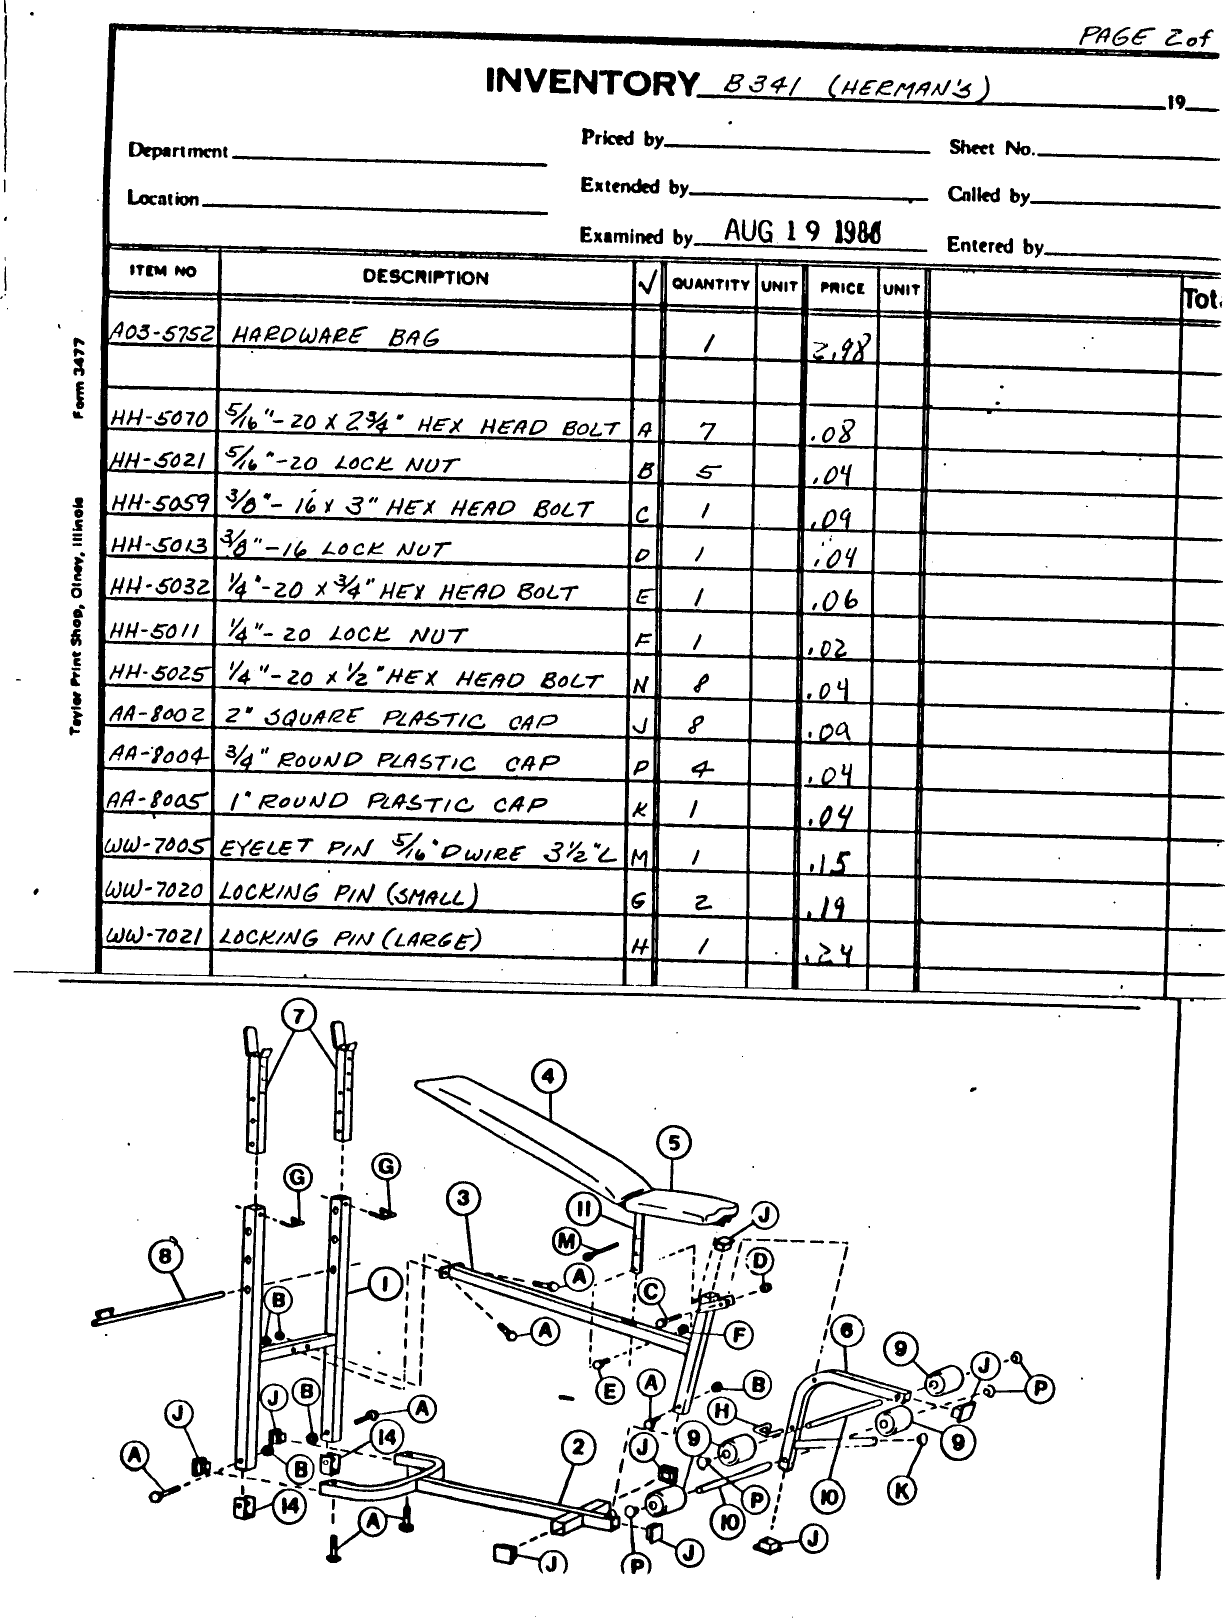 PAGE 2 of
INVENTORY B341 (HERMAN'S) 19
Department Priced by Sheet No.
Location Extended by Called by
Examined by AUG 19 1986 Entered by
ITEM NO DESCRIPTION √ QUANTITY UNIT PRICE UNIT Tot
A03-5752 HARDWARE BAG 1 2.98
HH-5070 5/16"-20 X 2 3/4" HEX HEAD BOLT A 7 .08
HH-5021 5/16"-20 LOCK NUT B 5 .04
HH-5059 3/8"-16 X 3" HEX HEAD BOLT C 1 .09
HH-5013 3/8"-16 LOCK NUT D 1 .04
HH-5032 1/4"-20 X 3/4" HEX HEAD BOLT E 1 .06
HH-5011 1/4"-20 LOCK NUT F 1 .02
HH-5025 1/4"-20 X 1/2" HEX HEAD BOLT N 8 .04
AA-8002 2" SQUARE PLASTIC CAP J 8 .09
AA-8004 3/4" ROUND PLASTIC CAP P 4 .04
AA-8005 1" ROUND PLASTIC CAP K 1 .04
WW-7005 EYELET PIN 5/16" D WIRE 3 1/2" L M 1 .15
WW-7020 LOCKING PIN (SMALL) G 2 .19
WW-7021 LOCKING PIN (LARGE) H 1 .24
Form 3477
Taylor Print Shop, Olney, Illinois
7
4
5
G
G
3
11
J
8
M
D
1
A
C
B
F
6
A
9
E
J
A
B
P
J
J
B
A
H
14
9
2
J
9
A
B
K
14
P
10
10
A
J
J
J
P